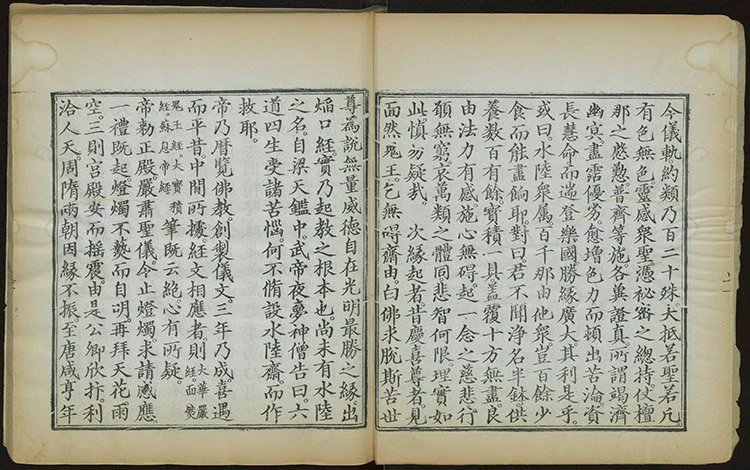 今儀軌約類乃百二十殊。大抵若聖若凡。
有色無色靈感眾聖憑秘密之總持仗檀
那之慈慜普齊等施各冀證真。所謂竭濟
幽㝠。盡霑優劣愈增色力而頓出苦淪資
長慧命而遄登樂國勝緣廣大其利是乎。
或曰水陸衆属百千那由他衆。豈百餘少
食而能盡餉耶對曰君不聞淨名半鉢供
養數百有餘。寶積一具盖覆十方無盡良
由法力有感施心無碍。起一念之慈悲行
願無窮。哀萬類之體同悲智何限理實如
此慎勿疑哉。 次緣起者。昔慶喜尊者。見
面然鬼王。乞無碍齋由。白佛求脫斯苦世
尊為說無量威德自在光明最勝之緣出
焰口經。實乃起教之根本也。尚未有水陸
之名。自梁天鑑中。武帝夜夢神僧告曰。六
道四生受諸苦惱。何不脩設水陸齋而作
救耶。
帝乃曆覽佛教創製儀文。三年乃成。喜遇
而平昔。中間所據。經文相應者。則大華嚴經。面燃
鬼王經。大寶積經。蘇息帝經。筆既云絕。心有所疑。
帝勅正殿嚴肅聖儀令止燈燭。求請感應
一禮既起燈燭不爇而自明再拜天花雨
空。三則宮殿安而搖震。由是公卿欣抃。利
洽人天。周隋兩朝因緣不振至唐咸亨年